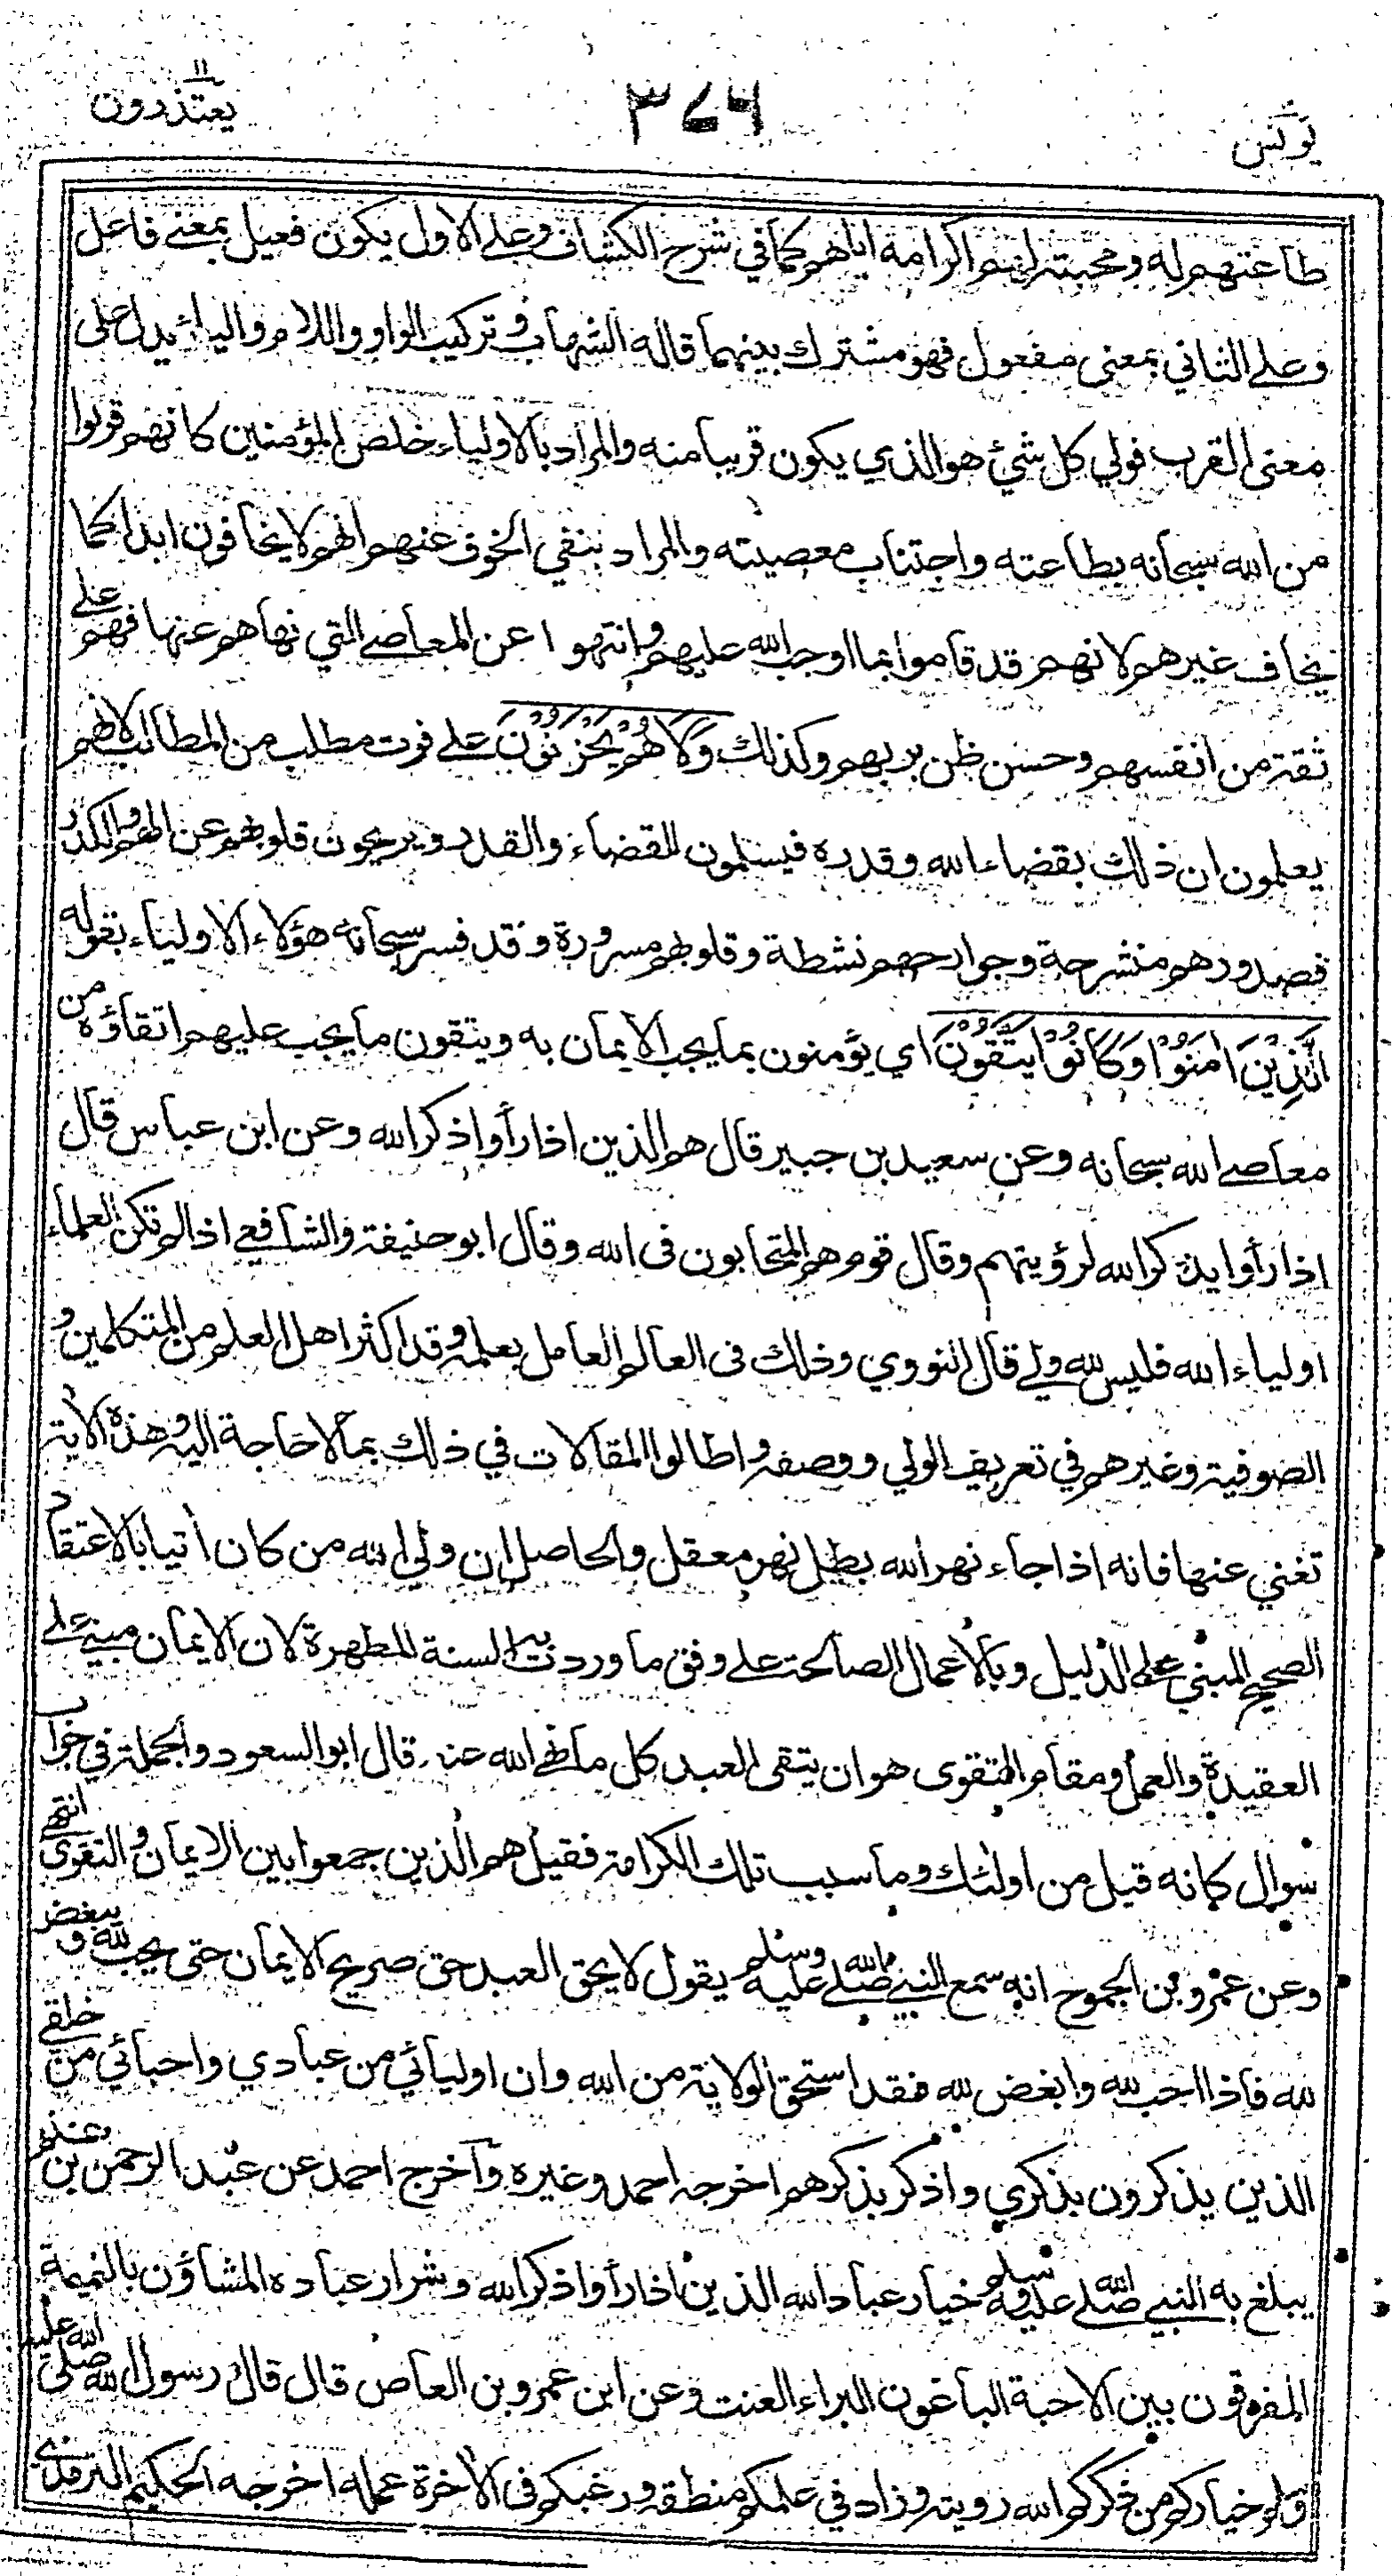 يعتذرون ١١
٣٧٦
يونس
طاعتهم له ومحبته لهم اكرامه اياهم كما في شرح الكشاف وعلى الاول يكون فعيل بمعنى فاعل
وعلى الثاني بمعنى مفعول فهو مشترك بينهما قاله الشهاب وتركيب الواو واللام والياء يدل على
معنى القرب فولي كل شيء هو الذي يكون قريبا منه والمراد بالاولياء خلص المؤمنين كانهم قربوا
من الله سبحانه بطاعته واجتناب معصيته والمراد بنفي الخوف عنهم انهم لا يخافون ابدا كما
يخاف غيرهم لانهم قد قاموا بما اوجب الله عليهم وانتهوا عن المعاصي التي نهاهم عنها فهم على
ثقة من انفسهم وحسن ظن بربهم وكذلك وَلَا هُمْ يَحْزَنُوْنَ على فوت مطلب من المطالب لانهم
يعلمون ان ذلك بقضاء الله وقدره فيسلمون للقضاء والقدر ويريحون قلوبهم عن الهم والكدر
فصدورهم منشرحة وجوارحهم نشطة وقلوبهم مسرورة وقد فسر سبحانه هؤلاء الاولياء بقوله
اَلَّذِيْنَ اٰمَنُوْا وَكَانُوْا يَتَّقُوْنَ اي يؤمنون بما يجب الايمان به ويتقون ما يجب عليهم اتقاؤه من
معاصي الله سبحانه وعن سعيد بن جبير قال هم الذين اذا رأوا ذكر الله وعن ابن عباس قال
اذا رأوا يذكر الله لرؤيتهم وقال قوم هم المتحابون في الله وقال ابو حنيفة والشافعي اذا لم تكن العلماء
اولياء الله فليس لله ولي قال النووي وذلك في العالم العامل بعلمه وقد اكثر اهل العلم من المتكلمين و
الصوفية وغيرهم في تعريف الولي ووصفه واطالوا المقالات في ذلك بما لا حاجة اليه وهذه الآية
تغني عنها فانه اذا جاء نهر الله بطل نهر معقل والحاصل ان ولي الله من كان اتيا بالاعتقاد
الصحيح المبني على الدليل وبالاعمال الصالحة على وفق ما وردت به السنة المطهرة لان الايمان مبني على
العقيدة والعمل ومقام التقوى هو ان يتقي العبد كل ما نهى الله عنه قال ابو السعود والجملة في جواب
سوال كانه قيل من اولئك وما سبب تلك الكرامة فقيل هم الذين جمعوا بين الايمان والتقوى انتهى
وعن عمرو بن الجموح انه سمع النبي صلى الله عليه وسلم يقول لا يحق العبد حق صريح الايمان حتى يحب لله ويبغض
لله فاذا احب لله وابغض لله فقد استحق الولاية من الله وان اوليائي من عبادي واحبائي من خلقي
الذين يذكرون بذكري واذكر بذكرهم اخرجه احمد وغيره وآخرج احمد عن عبد الرحمن بن غنم
يبلغ به النبي صلى الله عليه وسلم خيار عباد الله الذين اذا رأوا ذكر الله وشرار عباده المشاؤن بالنميمة
المفرقون بين الاحبة الباغون البراء العنت وعن ابن عمرو بن العاص قال قال رسول الله صلى الله عليه
وسلم خياركم من ذكركم الله رويته وزاد في علمكم منطقه ورغبكم في الآخرة عمله اخرجه الحكيم الترمذي